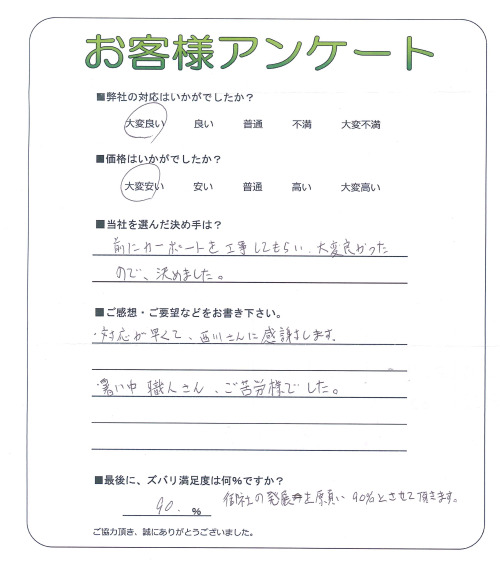 お客様アンケート
■弊社の対応はいかがでしたか？
大変良い 良い 普通 不満 大変不満
■価格はいかがでしたか？
大変安い 安い 普通 高い 大変高い
■当社を選んだ決め手は？
前にカーポートを工事してもらい、大変良かった
ので、決めました。
■ご感想・ご要望などをお書き下さい。
・対応が早くて、西川さんに感謝します。
・暑い中 職人さん、ご苦労様でした。
■最後に、ズバリ満足度は何%ですか？
90. % 御社の発展を願い 90%とさせて頂きます。
ご協力頂き、誠にありがとうございました。